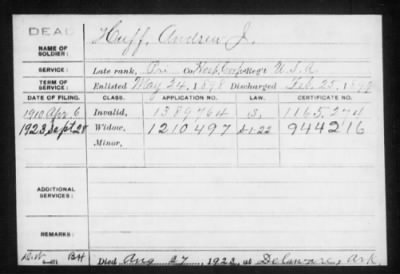 DEAD
NAME OF SOLDIER: Huff, Andrew J.
SERVICE: Late rank, Pri Co. Hosp. Corps Reg't U.S.A.
TERM OF SERVICE: Enlisted May 24, 1898 Discharged Feb. 25, 1899
DATE OF FILING. CLASS. APPLICATION NO. LAW. CERTIFICATE NO.
1910 Apr. 6 Invalid, 1389764 1165,274
1923 Sept 28 Widow, 1210497 944216
Minor,
ADDITIONAL SERVICES:
REMARKS:
BH Died Aug 27, 1922, at Delaware, Ark.